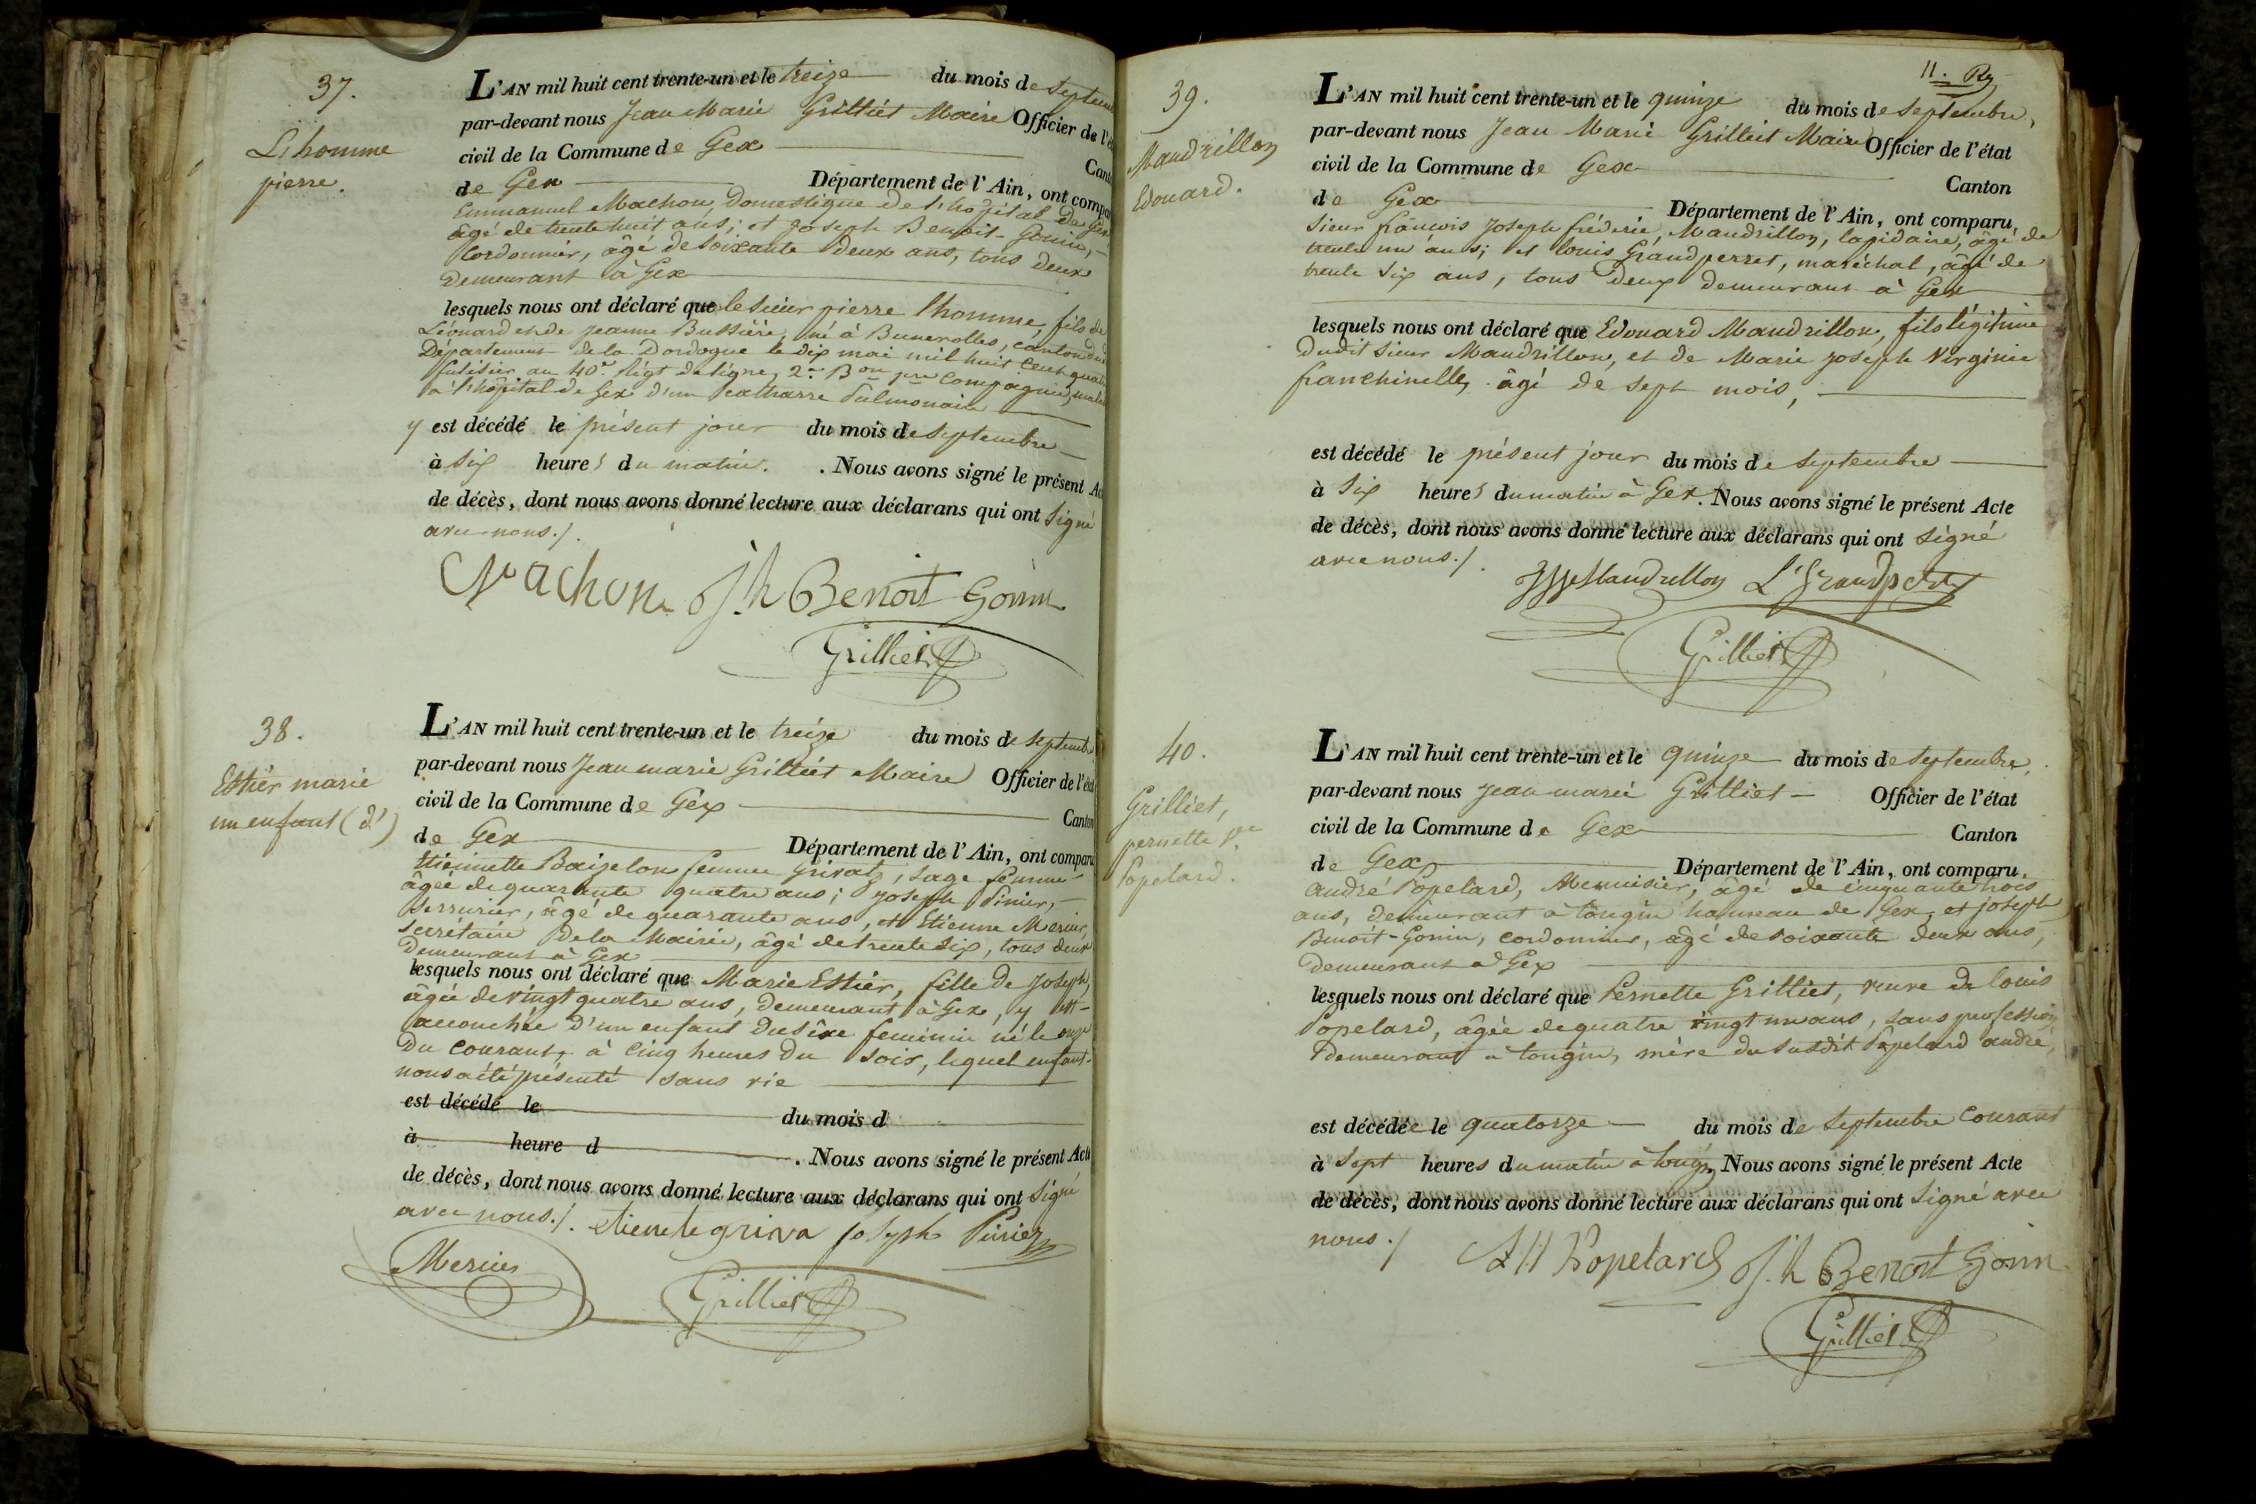 37.
Lihomme
pierre.
L'AN mil huit cent trente-un et le treize du mois de septem
par-devant nous Jean Marie Grilliet Maire Officier de l'é
civil de la Commune de Gex
Cant
de Gex Département de l'Ain, ont compa
Emmanuel Machon, Domestique de l'hôpital de Gex
âgé de trente huit ans; et Joseph Benoit-Gonin,
Cordonnier, âgé de soixante Deux ans, tous deux
Demeurant à Gex
lesquels nous ont déclaré que le sieur pierre lhomme, fils de
Léonard et de jeanne Bussière, né à Bunerolles, canton dud
Département de la Dordogne le dix mai mil huit cent quatre
fusilier au 40e Régt de ligne, 2e Bon 1re Compagnie, malade
à l'hôpital de Gex d'un catharre Pulmonaire
y est décédé le présent jour du mois de septembre
à six heures du matin. . Nous avons signé le présent Ac
de décès, dont nous avons donné lecture aux déclarans qui ont signé
avec nous./.
Machon J.h Benoit Gonin
Grilliet
38.
Estier marie
un enfant (d')
L'AN mil huit cent trente-un et le treize du mois de septembre
par-devant nous Jean marie Grilliet Maire Officier de l'éta
civil de la Commune de Gex
Canton
de Gex Département de l'Ain, ont comparu
Etiennette Baizelon femme Grivat, sage femme
âgée de quarante quatre ans; joseph Pinier,
serrurier, âgé de quarante ans, et Etienne Mercier,
secrétaire de la Mairie, âgé de trente six, tous deux
Demeurant à Gex
lesquels nous ont déclaré que Marie Estier, fille de Joseph,
âgée de vingt quatre ans, demeurant à Gex, y est
accouchée d'un enfant du sêxe feminin né le onze
Du courant, à cinq heures Du soir, lequel enfant
nous a été présenté sans vie
est décédé le du mois d
à heure d . Nous avons signé le présent Acte
de décès, dont nous avons donné lecture aux déclarans qui ont signé
avec nous./. etienete griva joseph Pinier
Mercier
Grilliet
11. Ry
39.
Maudrillon
Edouard.
L'AN mil huit cent trente-un et le quinze du mois de septembre,
par-devant nous Jean Marie Grilliet Maire Officier de l'état
civil de la Commune de Gex
Canton
de Gex Département de l'Ain, ont comparu,
Sieur françois Joseph fréderic, Maudrillon, lapidaire, âgé de
trente un ans; et Louis Grandperret, maréchal, âgé de
trente six ans, tous deux demeurant à Gex
lesquels nous ont déclaré que Edouard Maudrillon, fils légitime
Dudit sieur Maudrillon, et de Marie joseph Virginie
franchinelle, âgé de sept mois,
est décédé le présent jour du mois de septembre
à six heures du matin à Gex . Nous avons signé le présent Acte
de décès, dont nous avons donné lecture aux déclarans qui ont signé
avec nous./.
Maudrillon L.s Grandperret
Grilliet
40.
Grilliet,
pernette Ve
Popelard.
L'AN mil huit cent trente-un et le quinze du mois de septembre,
par-devant nous jean marie Grilliet Officier de l'état
civil de la Commune de Gex
Canton
de Gex Département de l'Ain, ont comparu,
andré Popelard, Menuisier, âgé de cinquante trois
ans, demeurant à tougin hameau de Gex, et joseph
Benoit-Gonin, cordonnier, âgé de soixante deux ans,
demeurant à Gex
lesquels nous ont déclaré que Pernette Grilliet, veuve de louis
Popelard, âgée de quatre vingt un ans, sans profession
Demeurant à tougin, mère du susdit Popelard andré,
est décédée le quatorze du mois de septembre courant
à sept heures du matin à tougin. Nous avons signé le présent Acte
de décès, dont nous avons donné lecture aux déclarans qui ont signé avec
nous./
Popelard J.h Benoit Gonin
Grilliet